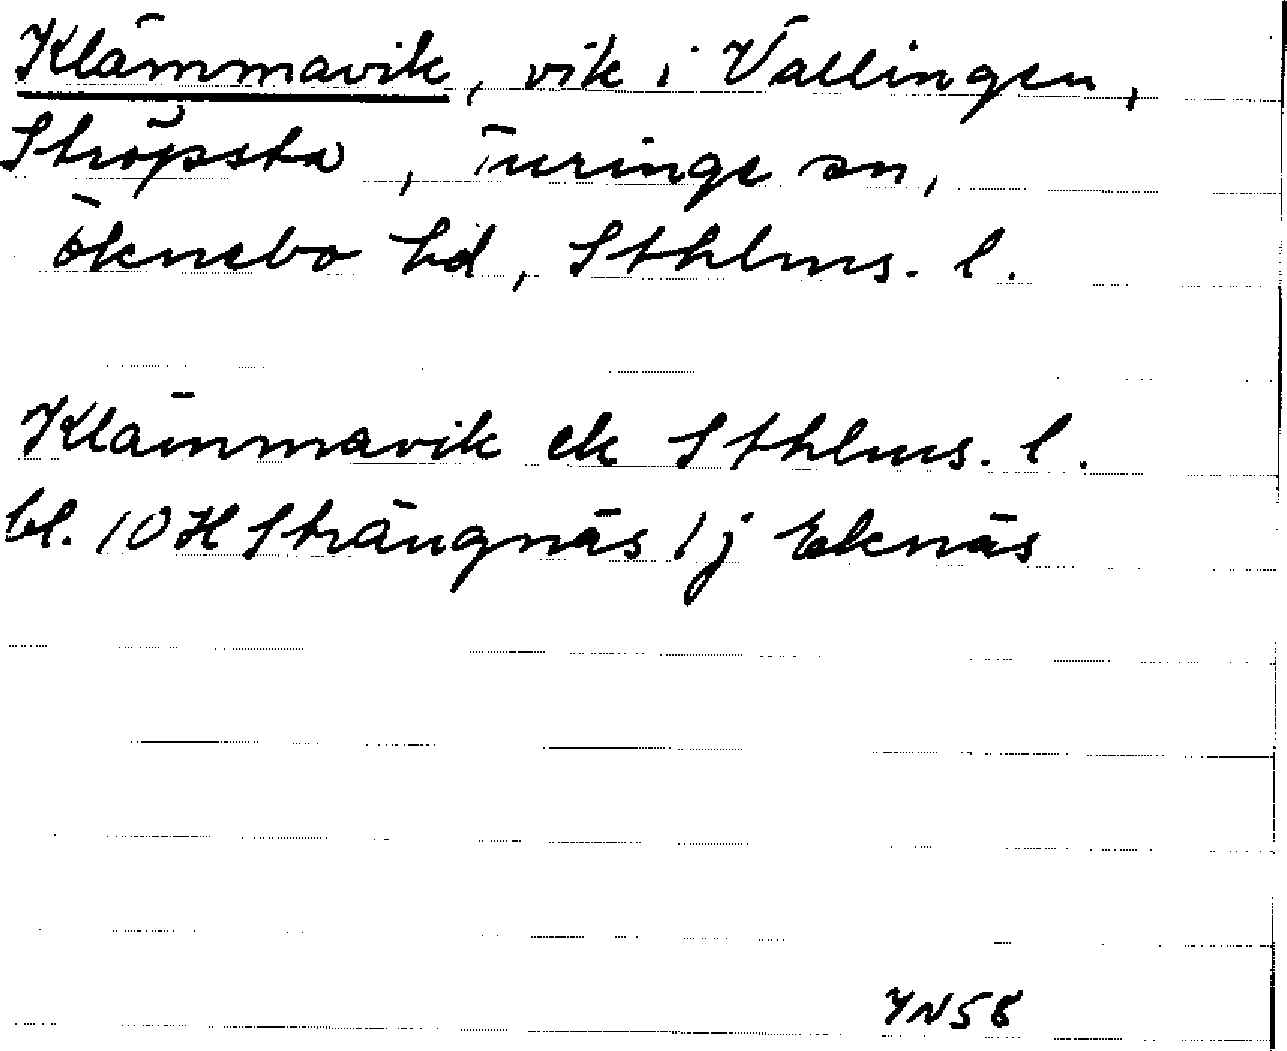 Klämmavik, vik i Vällingen,
Ströpsta, Turinge sn,
Öknebo hd, Sthlms. l.
Klämmavik ek Sthlms. l.
bl. 10H Strängnäs 1j Eknäs
YN58